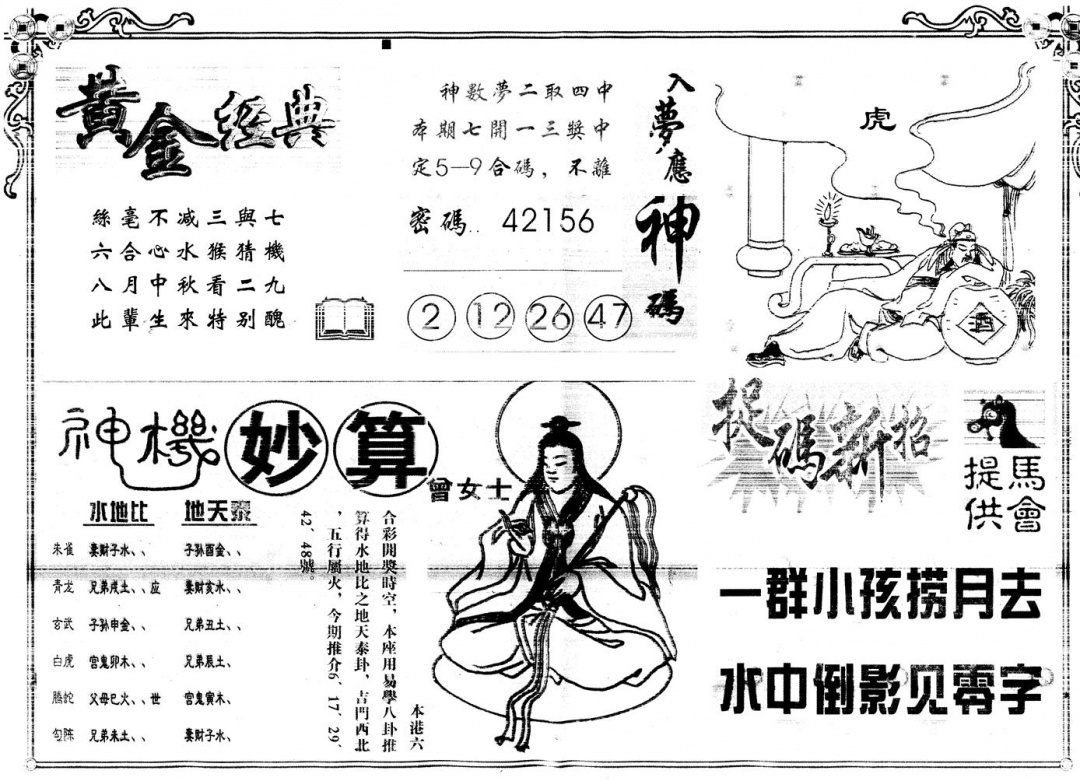 黃金經典
絲毫不减三與七
六合心水猴猜機
八月中秋看二九
此輩生來特别醜
神數夢二取四中
本期七開一三獎中
定5—9合碼，不離
密碼.. 42156
2 12 26 47
入夢應神碼
虎
酒
神機妙算
曾女士
水地比 地天泰
朱雀 妻财子水、、 子孙酉金、、
青龙 兄弟戌土、、应 妻财亥水、、
玄武 子孙申金、、 兄弟丑土、、
白虎 官鬼卯木、、 兄弟辰土、
螣蛇 父母巳火、、世 官鬼寅木、
勾陈 兄弟未土、、 妻财子水、
本港六
合彩開獎時空，本座用易學八卦推
算得水地比之地天泰卦，吉門西北
，五行屬火，今期推介6、17、29、
42、48號。
捉碼新招
馬會
提供
一群小孩捞月去
水中倒影见零字